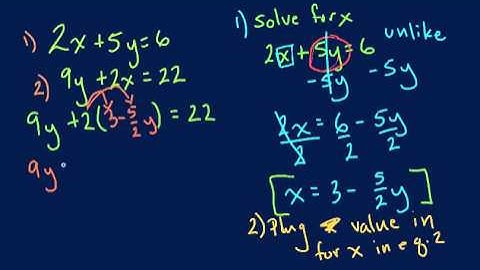 1) 2x + 5y = 6
2) 9y + 2x = 22
9y + 2(3 - 5/2 y) = 22
9y
1) solve for x
unlike
2x + 5y = 6
- 5y - 5y
2x/2 = 6/2 - 5y/2
[x = 3 - 5/2 y]
2) Plug value in
for x in eq. 2